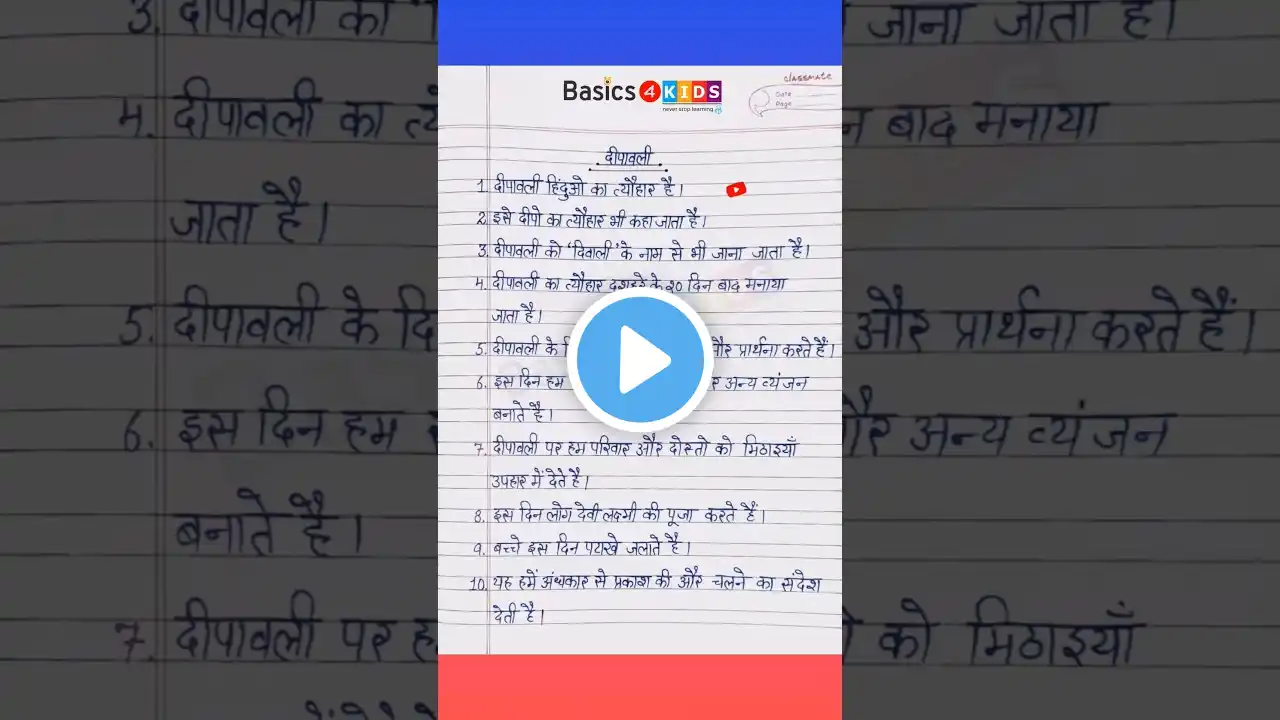 Basics 4 KIDS
never stop learning
classmate
Date
Page
दीपावली
1. दीपावली हिंदुओ का त्यौहार है।
2. इसे दीपो का त्यौहार भी कहा जाता है।
3. दीपावली को 'दिवाली' के नाम से भी जाना जाता है।
4. दीपावली का त्यौहार दशहरे के २० दिन बाद मनाया
जाता है।
5. दीपावली के और प्रार्थना करते हैं।
6. इस दिन हम अन्य व्यंजन
बनाते है।
7. दीपावली पर हम परिवार और दोस्तो को मिठाइयाँ
उपहार में देते है।
8. इस दिन लोग देवी लक्ष्मी की पूजा करते हैं।
9. बच्चे इस दिन पटाखे जलाते है।
10. यह हमें अंधकार से प्रकाश की और चलने का संदेश
देती है।